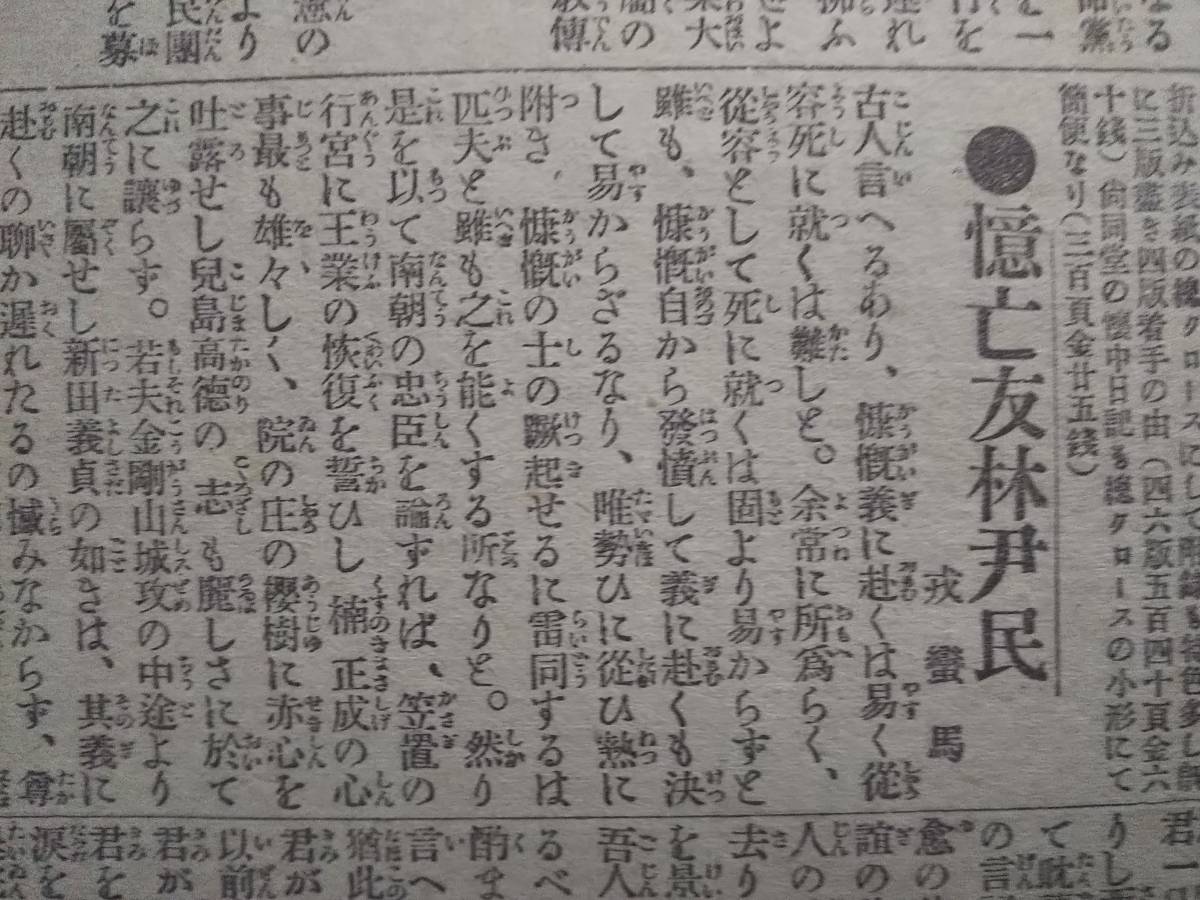 なる
折込み
に三版盡き四版着手の由(四六版五百四十頁金六
十錢)尙同堂の懷中日記る總クロースの小形にて
簡便なり(三百頁金廿五錢)
●憶亡友林尹民
戎蠻馬
古人言へるあり、慷慨義に赴くは易く從
容死に就くは難しと。余常に所爲らく、
從容として死に就くは固より易からずと
雖も、慷慨自から發憤して義に赴くも決
して易からざるなり、唯勢ひに從ひ熱に
附き、慷慨の士の蹶起せるに雷同するは
匹夫と雖も之を能くする所なりと。然り
是を以て南朝の忠臣を論ずれば、笠置の
行宮に王業の恢復を誓ひし楠正成の心
事最も雄々しく、院の庄の櫻樹に赤心を
吐露せし兒島高德の志も麗しさに於て
之に讓らず。若夫金剛山城攻の中途より
南朝に屬せし新田義貞の如きは、其義に
赴くの聊か遲れたるの憾みなからず、尊
君一
りし
て耽
の言
愈の
誼の
人の
去り
を景
吾人
るべ
酌ま
言へ
猶此
君が
以前
君が
君を
淚を